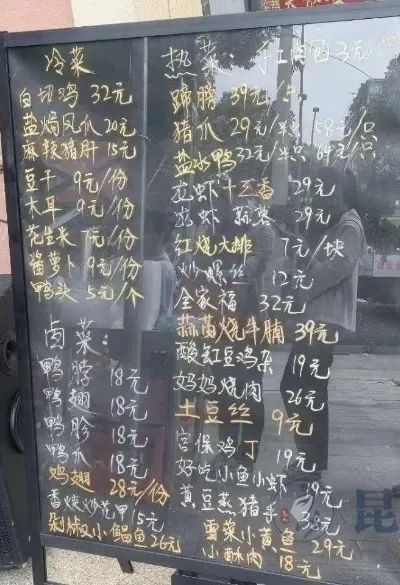 冷菜
白切鸡 32元
盐焗凤爪 20元
麻辣猪肝 15元
豆干 9元/份
木耳 9元/份
花生米 7元/份
酱萝卜 9元/份
鸭头 5元/个
卤菜:
鸭脖 18元
鸭翅 18元
鸭胗 18元
鸭爪 18元
鸡翅 28元/份
香辣炒花甲 15元
剁椒小鲳鱼 26元
热菜: 手工肉包 3元/只
蹄膀 39元/只
猪爪 29元/半只 58元/只
盐水鸭 32元/半只 64元/只
龙虾 十三香 29元
龙虾 蒜蓉 29元
红烧大排 7元/块
炒螺丝 12元
全家福 32元
蒜苗烧牛腩 39元
酸豇豆鸡杂 19元
妈妈烧肉 26元
土豆丝 9元
宫保鸡丁 19元
好吃小鱼小虾 19元
黄豆蒸猪手
雪菜小黄鱼 29元
小酥肉 18元
昆